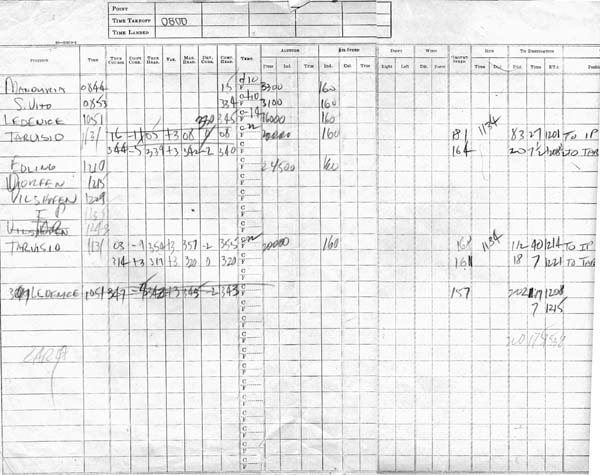 POINT
TIME TAKEOFF 0800
TIME LANDED
POSITION TIME TRUE COURSE DRIFT CORR. TRUE HEAD. VAR. MAG. HEAD. DEV. COMP. HEAD. TEMP. ALTITUDE AIR SPEED DRIFT WIND GROUND SPEED RUN TO DESTINATION
Press Ind. True Ind. Cal. True Right Left Dir. Force Time Dist. Dist. Time ETA Position
MANDURIA 0844 15 C +10 F 3300 160
S. VITO 0853 334 C +10 F 3100 160
LEDENICE 1051 345 C -14 F 16000 160
TARVISIO 1131 16 -11 05 +3 08 0 08 C F 20000 160 181 1134 83 27 1201 TO IP
344 -5 339 +3 342 -2 340 C F 164 20 7 1208 TO TAR
EDLING 1210 C F 24500 160
DORFEN 1215 C F
VILSHOFEN 1229 C F
C F
C F
TARVISIO 1131 03 -9 354 +3 357 -2 355 C F 20000 160 168 1134 112 40 1214 TO IP
314 +3 317 +3 320 0 320 C F 161 18 7 1221 TO TAR
LEDENICE 1051 347 342 +3 345 -2 343 C F 157 1208
7 1215
C F